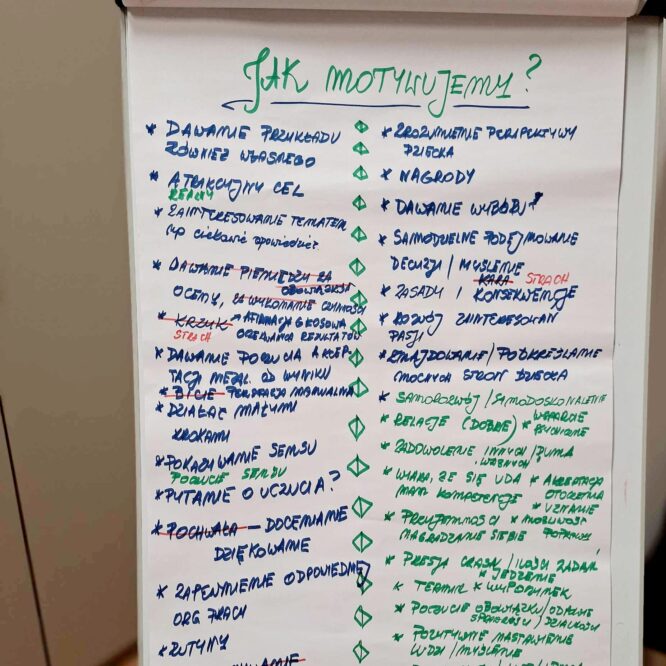 JAK MOTYWUJEMY?
* DAWANIE PRZYKŁADU
RÓWNIEŻ WŁASNEGO
* ATRAKCYJNY CEL
REALNY
* ZAINTERESOWANIE TEMATEM
np ciekawie opowiedzieć
* DAWANIE PIENIĘDZY ZA
OBOWIĄZKI
OCENY, ZA WYKONANIE CZYNNOŚCI
* KRZYK - AFIRMACJA GŁOSOWA
STRACH OCZEKIWANIA REZULTATÓW
* DAWANIE POCZUCIA AKCEP
TACJI NIEZAL. OD WYNIKU
* BICIE - PERSWAZJA MANUALNA
* DZIAŁAĆ MAŁYMI
KROKAMI
* POKAZYWANIE SENSU
POCZUCIE SENSU
* PYTANIE O UCZUCIA?
* POCHWAŁA - DOCENIANIE
DZIĘKOWANIE
* ZAPEWNIENIE ODPOWIEDNIEJ
ORG PRACY
* RUTYNY
* ZROZUMIENIE PERSPEKTYWY
DZIECKA
* NAGRODY
* DAWANIE WYBORU
* SAMODZIELNE PODEJMOWANIE
DECYZJI / MYŚLENIE
KARA STRACH
* ZASADY I KONSEKWENCJE
* ROZWÓJ ZAINTERESOWAŃ
PASJI
* ZNAJDOWANIE / PODKREŚLANIE
MOCNYCH STRON DZIECKA
* SAMOROZWÓJ / SAMODOSKONALENIE
* RELACJE (DOBRE) * WSPARCIE
PSYCHICZNE
* ZADOWOLENIE INNYCH / DUMA
* WIARA, ŻE SIĘ UDA * AKCEPTACJA
MAM KOMPETENCJE OTOCZENIA
* UZNANIE
* PRZYJEMNOŚCI * MOŻLIWOŚĆ
NAGRADZANIE SIEBIE POPRAWY
* PRESJA CZASU / ILOŚCI ZADAŃ
* JEDZENIE
* TERMIN * WYPOCZYNEK
* POCZUCIE OBOWIĄZKU /
* POZYTYWNE NASTAWIENIE
LUDZI / MYŚLENIE